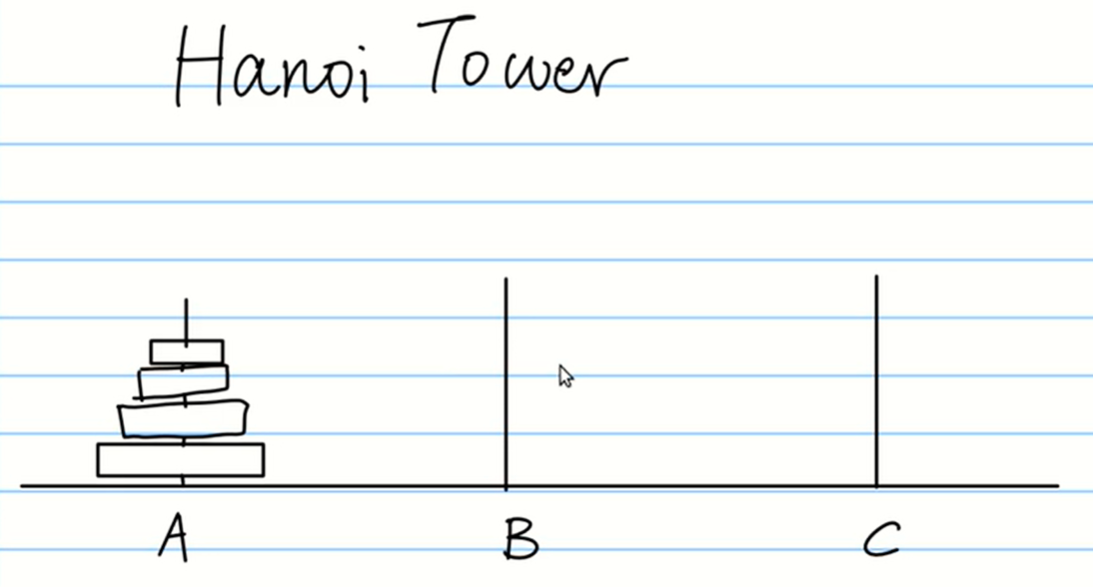 Hanoi Tower
A B C